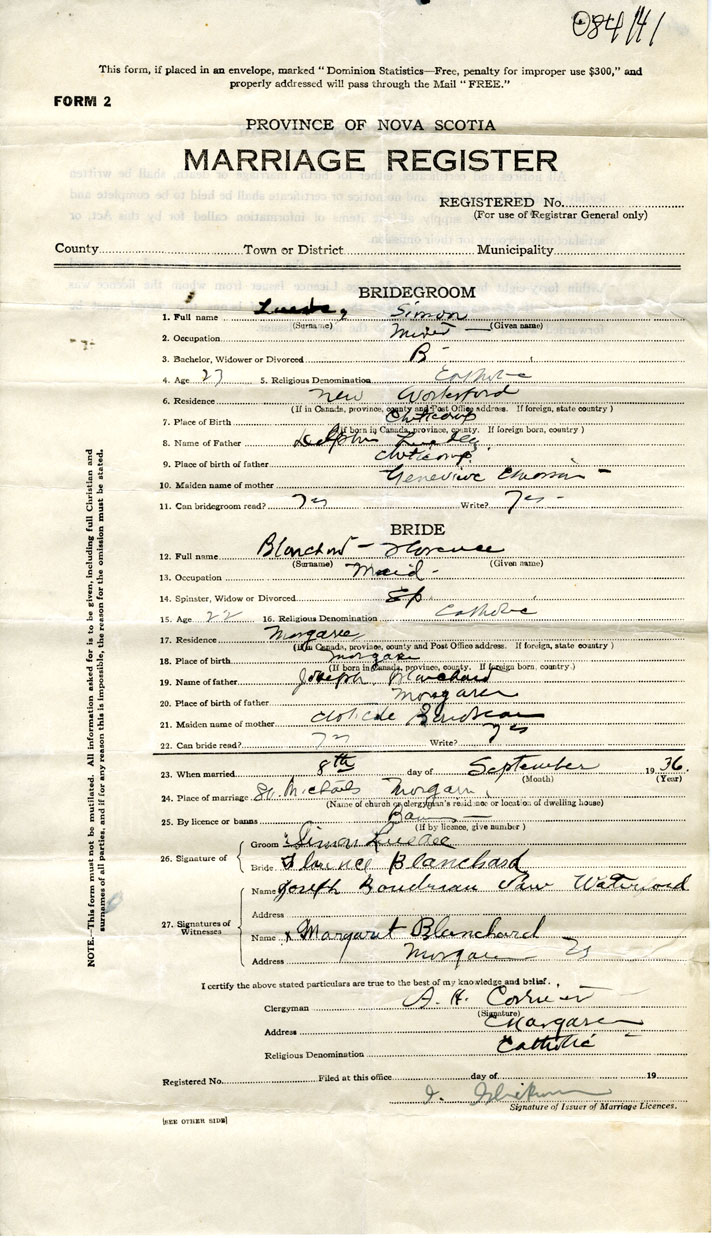 This form, if placed in an envelope, marked "Dominion Statistics—Free, penalty for improper use $300," and
properly addressed will pass through the Mail "FREE."
FORM 2
PROVINCE OF NOVA SCOTIA
MARRIAGE REGISTER
REGISTERED No.
(For use of Registrar General only)
County Town or District Municipality
BRIDEGROOM
1. Full name Simon
(Surname) (Given name)
2. Occupation Miner
3. Bachelor, Widower or Divorced B
4. Age 27 5. Religious Denomination Catholic
6. Residence New Waterford
(If in Canada, province, county and Post Office address. If foreign, state country)
7. Place of Birth Cheticamp
(If born in Canada, province, county. If foreign born, country)
8. Name of Father
9. Place of birth of father Cheticamp
10. Maiden name of mother Genevieve
11. Can bridegroom read? Yes Write? Yes
BRIDE
12. Full name Blanchard - Florence
(Surname) (Given name)
13. Occupation Maid
14. Spinster, Widow or Divorced Sp
15. Age 22 16. Religious Denomination Catholic
17. Residence Margaree
(If in Canada, province, county and Post Office address. If foreign, state country)
18. Place of birth Margaree
(If born in Canada, province, county. If foreign born, country.)
19. Name of father Joseph Blanchard
20. Place of birth of father Margaree
21. Maiden name of mother
22. Can bride read? Yes Write? Yes
23. When married 8th day of September 1936.
(Month) (Year)
24. Place of marriage St. Michaels Margaree
(Name of church or clergyman's residence or location of dwelling house)
25. By licence or banns Banns
(If by licence, give number)
26. Signature of
Groom Simon
Bride Florence Blanchard
27. Signatures of Witnesses
Name Joseph Boudreau New Waterford
Address
Name x Margaret Blanchard
Address Margaree
I certify the above stated particulars are true to the best of my knowledge and belief.
Clergyman A. H. Cormier
(Signature)
Address Margaree
Religious Denomination Catholic
Registered No. Filed at this office day of 19
Signature of Issuer of Marriage Licences.
[SEE OTHER SIDE]
NOTE.—This form must not be mutilated. All information asked for is to be given, including full Christian and
surnames of all parties, and if for any reason this is impossible, the reason for the omission must be stated.